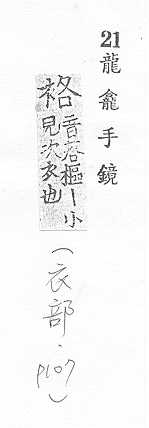 21 龍龕手鏡
袼 音落樞丨小
見次衣也
(衣部.P107)